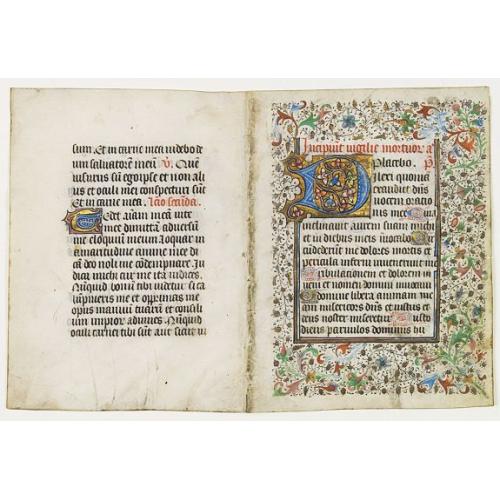 sum. Et in carne mea videbo de
um salvatorē meū. V. Quē
visurus sū ego ipse et non ali
us et oculi mei conspecturi sūt
Et in carne mea. Lc̄io secūda.
Tedet aīam meā vite
mee dimittā adversū
me eloquiū meum loquar in
amaritudine anime mee di
cā deo noli me cōdempnare In
dica michi cur me ita iudices
Nūquid bonū tibi videtur si ca
lūpnieris me et opprimas me
opus manuū tuarū et consili
um impior adiuves. Nūquid
oculi carnei tibi sūt aut sicut vi
Incipiūt vigilie mortuor̄ a
Placebo. P
Dilexi quoniā
exaudiet dn̄s
vocem oratio
nis mee Quia
inclinavit aurem suam michi
et in diebus meis invocabo Cir
cūdederūt me dolores mortis et
pericula inferni invenerūt me
Tribulationem et dolorem in
veni et nomen domini invocavi
O domine libera animam me
am misericors dn̄s et iustus et
deus noster miseretur Custo
diens parvulos dominus hu